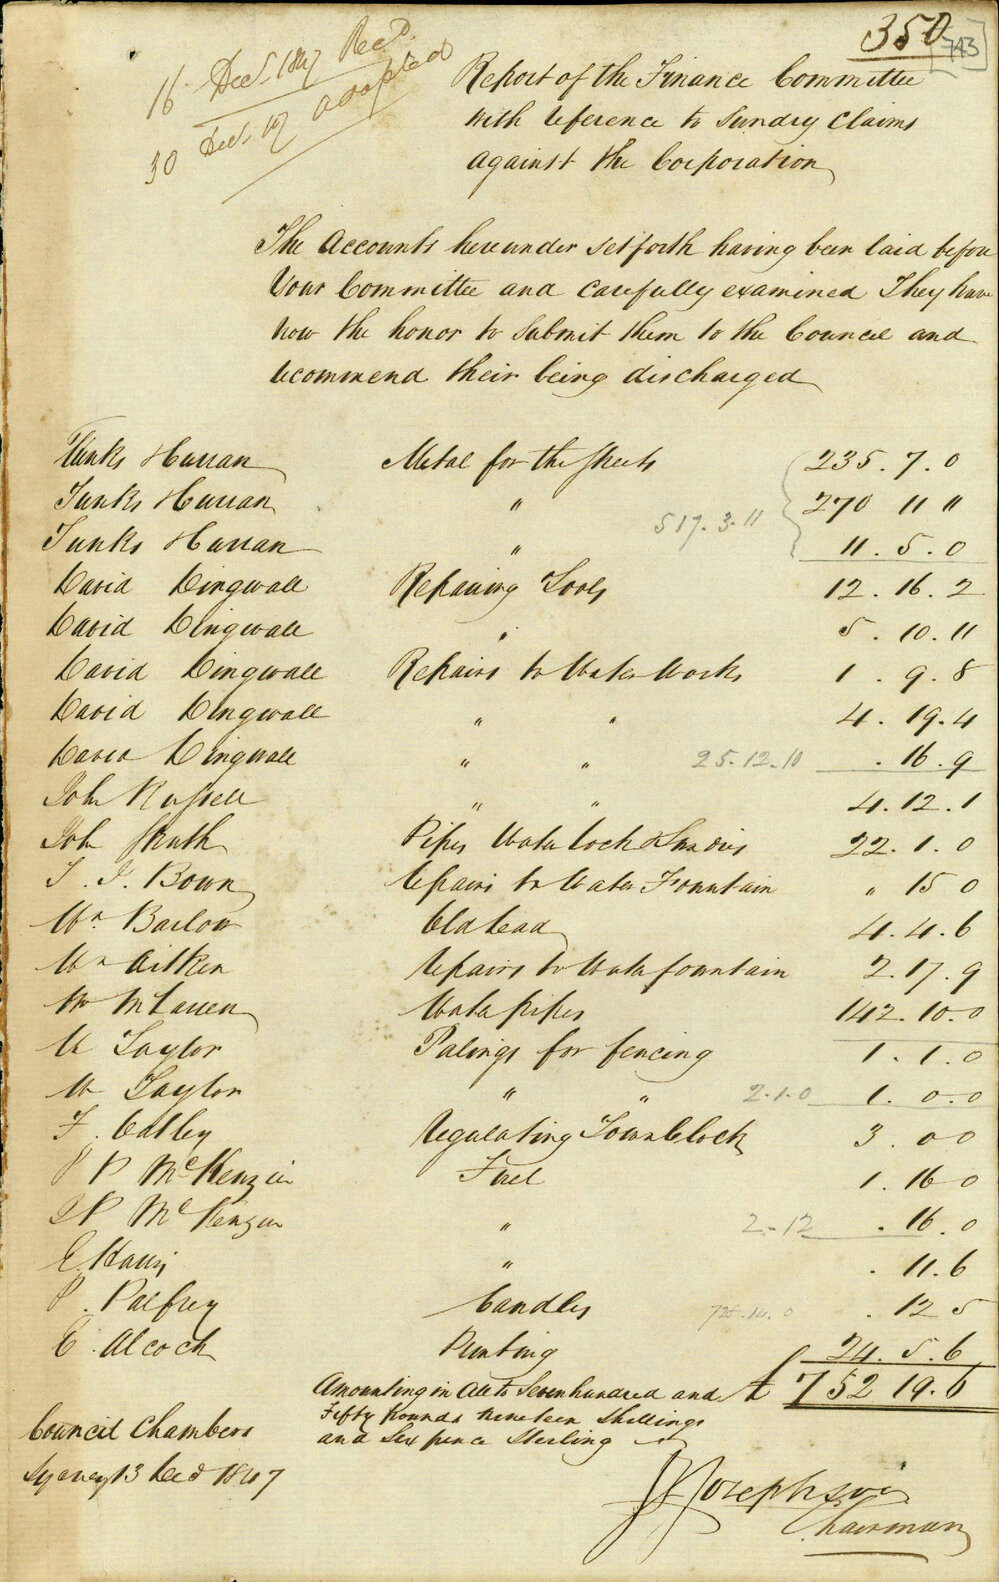 350
743
16 Dec 1847 Recd
30 Dec 47 adopted
Report of the Finance Committee
with reference to Sundry Claims
against the Corporation
The Accounts hereunder set forth having been laid before
Your Committee and carefully examined They have
now the honor to submit them to the Council and
recommend their being discharged
Tunks Hurran Metal for the Streets 235. 7. 0
Tunks Hurran " 270 11 11
Tunks Hurran " 517. 3. 11 11. 5. 0
David Dingwall Repairing Tools 12. 16. 2
David Dingwall " 5. 10. 11
David Dingwall Repairs to Water Works 1. 9. 8
David Dingwall " " 4. 19. 4
David Dingwall " " 25. 12. 10 . 16. 9
John Russell " " 4. 12. 1
John Struth Pipes Water Cock & Sundries 22. 1. 0
T. J. Bown repairs to Water Fountain " 15 0
Wm Barlow Old Lead 4. 4. 6
Wm Aitken repairs to Water fountain 2. 17. 9
Wm McLaren Water pipes 142. 10. 0
W Taylor Palings for fencing 1. 1. 0
W Taylor " " 2. 1. 0 1. 0. 0
F. Oatley Regulating Town Clock 3. 0 0
P P McKenzie Fuel 1. 16 0
P P McKenzie " 2-12 . 16. 0
E Harris " . 11. 6
P. Palfrey Candles 728. 14. 0 . 12 5
E. Alcock Printing 24. 5. 6
Amounting in all to Seven hundred and £ 752 19. 6
Fifty Pounds Nineteen Shillings
and Six pence Sterling
Council Chambers
Sydney 13 Decr 1847
Josephson
Chairman